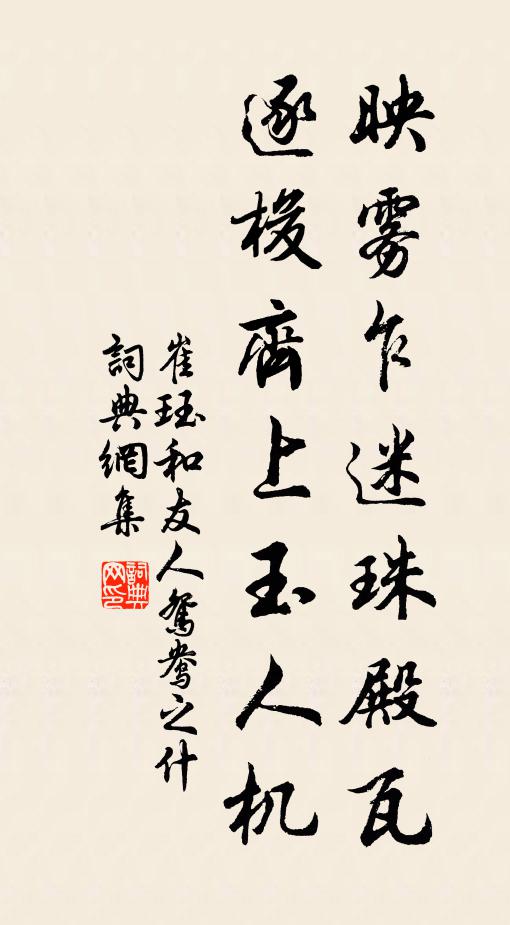 映雾乍迷珠殿瓦
逐梭齊上玉人机
崔珏和友人鴛鴦之什
詞典網集
詞典网印